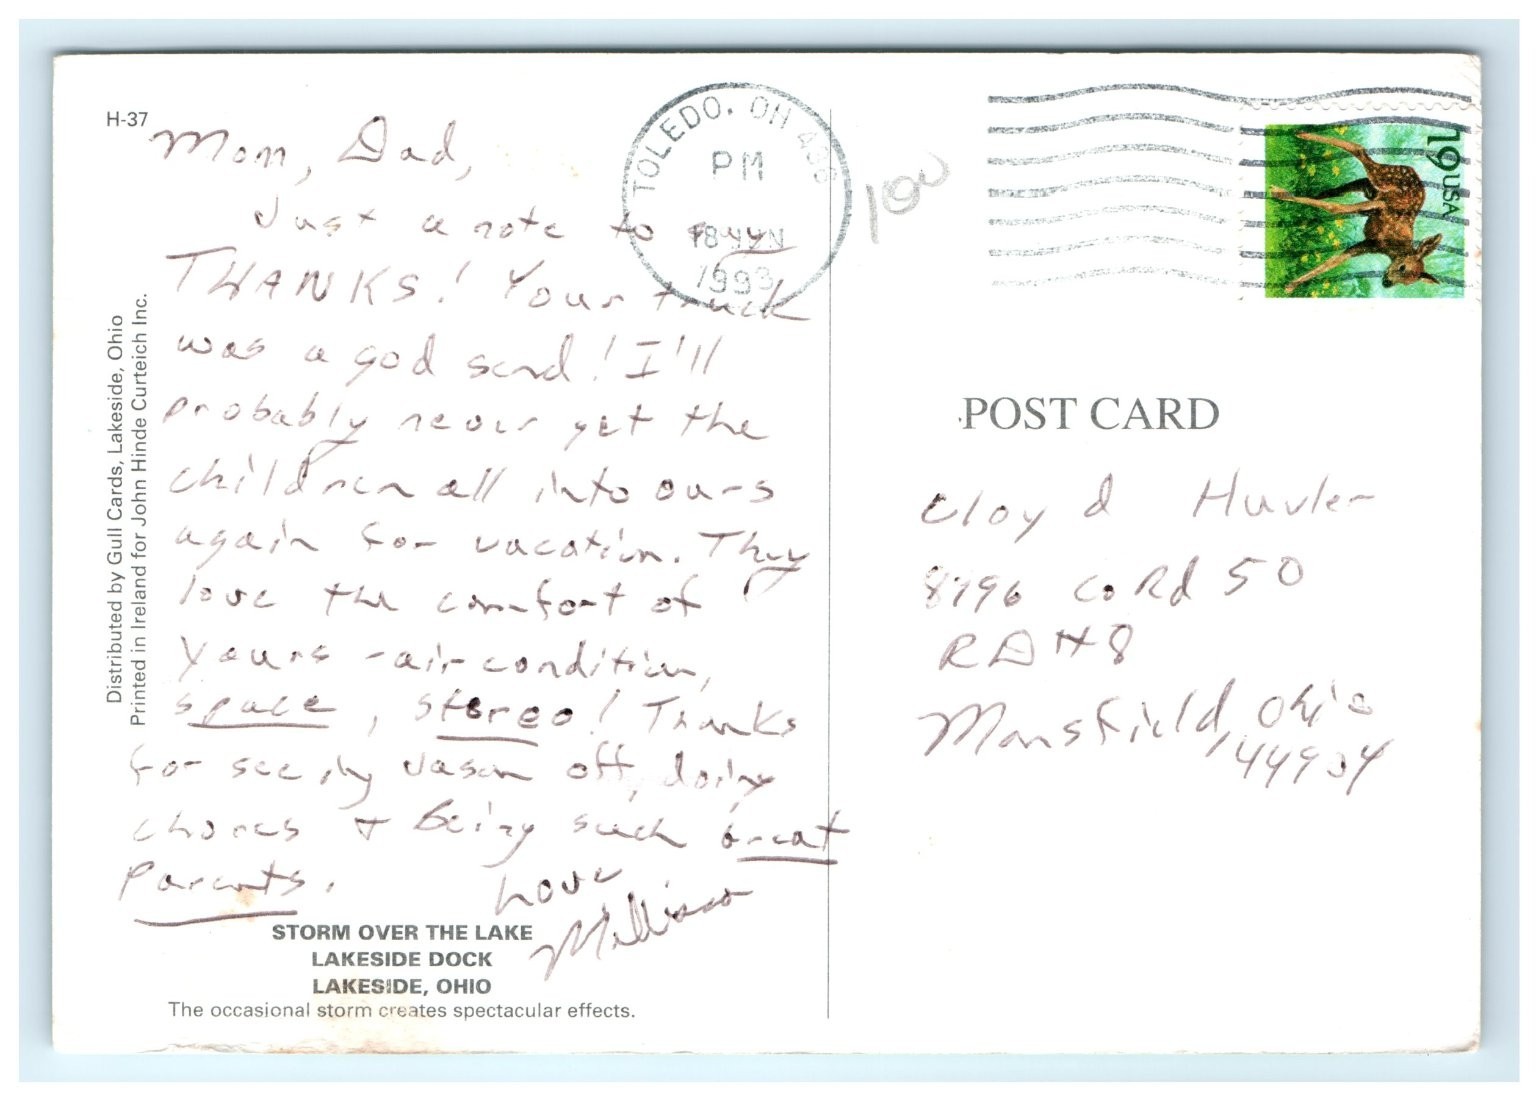 H-37
Mom, Dad,
Just a note to say
THANKS! Your truck
was a god send! I'll
probably never get the
children all into ours
again for vacation. They
love the comfort of
yours - air condition,
space, stereo! Thanks
for seeing Jason off, doing
chores + being such great
Parents.
Love
Mellissa
STORM OVER THE LAKE
LAKESIDE DOCK
LAKESIDE, OHIO
The occasional storm creates spectacular effects.
Distributed by Gull Cards, Lakeside, Ohio
Printed in Ireland for John Hinde Curteich Inc.
TOLEDO, OH 436
PM
18 JUN
1993
100
19USA
POST CARD
Cloyd
8796 Co Rd 50
RD #8
Mansfield, Ohio
44904